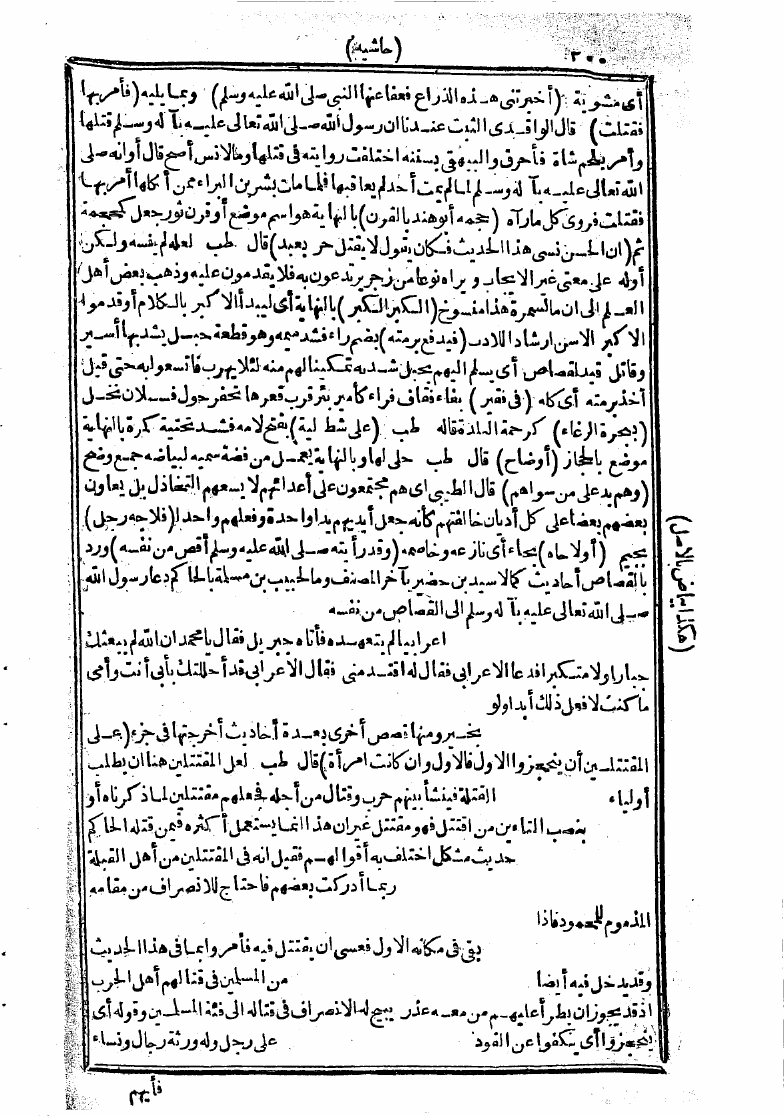 ٢٠٠
(حاشية)
أى مشوية (أخبرتنى هذه الذراع فعفا عنها النبى صلى الله عليه وسلم) وبما يليه (فأمر بها
فقتلت) قال الواقدى الثبت عندنا ان رسول الله صلى الله تعالى عليه بآله وسلم قتلها
وأمر بلحم شاة فأحرق والبيهقى بسننه اختلفت روايته فى قتلها ومالانس أصح قال أوانه صلى
الله تعالى عليه بآله وسلم لما لم يمت أحد لم يعاقبها فلما مات بشر بن البراء ممن أكلها أمر بها
فقتلت فروى كل مارآه (حجمه أبو هند بالقرن) بالنهاية هو اسم موضع أو قرن ثور جعل كمحجمة
ثم (ان الحسن نسى هذا الحديث فكان يقول لا يقتل حر بعبد) قال طب لعله لم ينسه ولكن
أوله على معنى غير الايجاب و يراه نوعا من زجر يردعون به فلا يقدمون عليه وذهب بعض أهل
العلم الى ان مالسمرة هذا منسوخ (الكبر الكبر) بالنهاية أى ليبدأ الاكبر بالكلام أو قدموا
الاكبر الاسن ارشادا للادب (فيدفع برمته) بضم راء فشد ميمه وهو قطعة حبل يشد بها أسير
وقاتل قيد لقصاص أى يسلم اليهم بحبل شد به تمكينا لهم منه لئلا يهرب فاتسعوا به حتى قيل
أخذ برمته أى كله (فى فقير) بفاء فقاف فراء كأمير بئر قرب قعرها تحفر حول فسلان نخل
(ببحرة الرغاء) كرحمة البلدة قاله طب (على شط لية) بفتح لامه فشد تحتية كمرة بالنهاية
موضع بالحجاز (أوضاح) قال طب حلى لها وبالنهاية يعمل من فضة سميه لبياضه جمع وضح
(وهم يد على من سواهم) قال الطيبى اى هم مجتمعون على أعدائهم لا يسعهم التخاذل بل يعاون
بعضهم بعضا على كل أديان خالفتهم كأنه جعل أيديهم يدا واحدة وفعلهم واحدا (فلاجه رجل)
بجيم (أولاحاه) بحاء أى نازعه وخاصمه (وقد رأيته صلى الله عليه وسلم أقص من نفسه) ورد
بالقصاص أحاديث كمالاسيد بن حضير بآخر المصنف وما لحبيب بن مسلمة بالحاكم دعا رسول الله
صلى الله تعالى عليه بآله وسلم الى القصاص من نفسه
اعرابيا لم يتعهده فأتاه جبريل فقال يا محمد ان الله لم يبعثك
جبارا ولا متكبرا فدعا الاعرابى فقال له اقتد منى فقال الاعرابى قد أحللتك بأبى أنت وأمى
ما كنت لا فعل ذلك أبدا ولو
بخير ومنها قصص أخرى بعدة أحاديث أخرجتها فى جزء (على
المقتتلين أن ينحجزوا الاول فالاول وان كانت امرأة) قال طب لعل المقتتلين هنا ان يطلب
أولياء القتلة فينشأ بينهم حرب وقتال من أجله فجعلهم مقتتلين لما ذكرناه أو
بنصب التاءين من اقتتل فهو مقتتل غير ان هذا انما يستعمل أكثره فيمن قتله الحاكم
حديث مشكل اختلف به أقوالهم فقيل انه فى المقتتلين من أهل القبلة
ربما أدركت بعضهم فاحتاج للانصراف من مقامه
المذموم للمحمود فاذا
بقى فى مكانه الاول فعسى ان يقتتل فيه فأمروا بما فى هذا الحديث
وقد يدخل فيه أيضا من المسلمين فى قتالهم أهل الحرب
اذ قد يجوز ان يطرأ عليهم من معه عذر يبيح له الانصراف فى قتاله الى فئة المسلمين وقوله أى
ينحجزوا أى ينكفوا عن القود على رجل وله ورثة رجال ونساء
(هكذا بياض بالاصل)
فأيهم